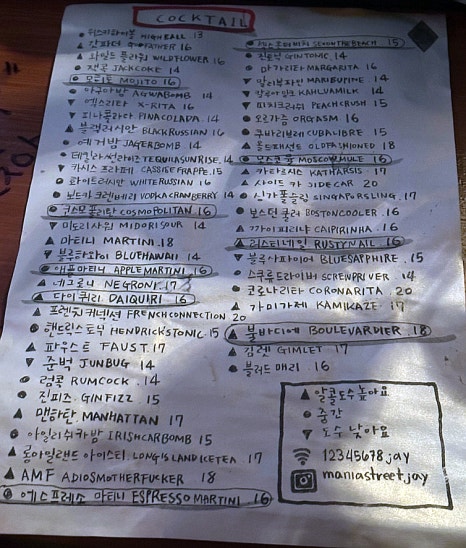 COCKTAIL
● 위스키하이볼 HIGHBALL 13
▲ 갓파더 GODFATHER 16
▲ 와일드 플라워 WILDFLOWER 16
● 잭콕 JACKCOKE 14
● 모히또 MOJITO 16
● 아구아밤 AGWABOMB 14
▼ 엑스리타 X-RITA 16
▼ 피나콜라다 PINACOLADA. 14
▲ 블랙러시안 BLACKRUSSIAN 16
● 예거밤 JAGERBOMB 14
● 테킬라썬라이즈 TEQUILASUNRISE. 14
▼ 카시스 프라페 CASSISFRAPPE. 15
● 화이트러시안 WHITERUSSIAN 16
● 보드카크랜베리 VODKACRANBERRY 14
● 코스모폴리탄 COSMOPOLITAN 16
▼ 미도리사워 MIDORISOUR 14
▲ 마티니 MARTINI. 18
▼ 블루하와이 BLUEHAWAII 14
● 애플마티니 APPLEMARTINI 16
▲ 네그로니 NEGRONI. 17
▲ 다이퀴리 DAIQUIRI 16
▲ 프렌치커넥션 FRENCHCONNECTION 20
● 핸드릭스토닉 HENDRICK'STONIC. 15
▲ 파우스트 FAUST. 17
▼ 준벅 JUNBUG. 14
● 럼콕 RUMCOCK. 14
● 진피즈 GINFIZZ 15
▲ 맨하탄 MANHATTAN 17
● 아일리쉬카밤 IRISHCARBOMB 15
▲ 롱아일랜드 아이스티 LONGISLANDICETEA 17
▲ AMF ADIOSMOTHERFUCKER 18
● 에스프레소 마티니 ESPRESSOMARTINI 16
SEXONTHEBEACH 15
● 진토닉 GINTONIC. 14
마가리타 MARGARITA. 16
▼ 말리부파인 MARIBUPINE. 14
깔루아밀크 KAHLUAMILK. 14
▼ 피치크러쉬 PEACHCRUSH 15
● 오르가즘 ORGASM 16
● 쿠바리브레 CUBALIBRE 15
▲ 올드패션드 OLDFASHIONED 18
● 모스코뮬 MOSCOWMULE 16
▲ 카타르시스 KATHARSIS 17
▲ 사이드카 SIDECAR 20
● 싱가폴슬링 SINGAPORSLING. 17
● 보스턴쿨러 BOSTONCOOLER 16
▲ 까이피리냐 CAIPIRINHA. 16
▲ 러스티네일 RUSTYNAIL 16
● 블루사파이어 BLUESAPPHIRE. 15
● 스크류드라이버 SCREWDRIVER 14
● 코로나리타 CORONARITA. 20
▲ 가미가제 KAMIKAZE. 17
▲ 불바디에 BOULEVARDIER. 18
▲ 김렛 GIMLET. 17
● 블러드메리. 16
▲ 알콜도수높아요
● 중간
▼ 도수 낮아요
12345678jay
maniastreet.jay